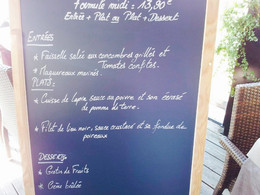 Formule midi = 13,90€
Entrée + Plat ou Plat + Dessert
ENTRÉES
* Faisselle salée aux concombres grillés et
Tomates confites.
* Maquereaux marinés.
PLATS:
* Cuisse de lapin sauce au poivre et son écrasé
de pomme de terre.
* Filet de lieu noir, sauce crustacé et sa fondue de
poireaux
DESSERTS
* Gratin de Fruits
* Crème brûlée